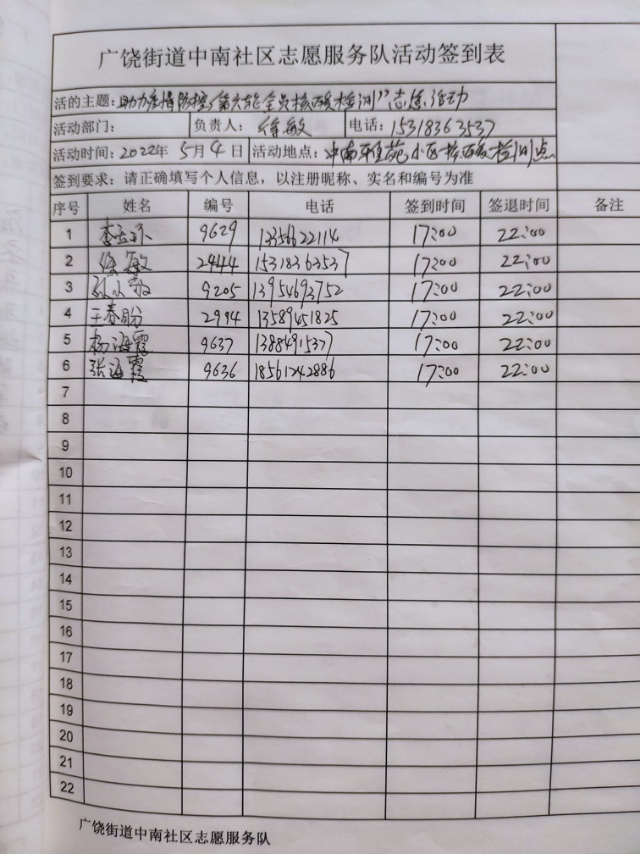 广饶街道中南社区志愿服务队活动签到表
活的主题: 助力疫情防控, 第六轮全员核酸检测"志愿活动
活动部门: 负责人: 徐敏 电话: 15318363537
活动时间: 2022年 5月 4 日 活动地点: 中南 苑小区核酸检测点
签到要求: 请正确填写个人信息, 以注册昵称、实名和编号为准
序号 姓名 编号 电话 签到时间 签退时间 备注
1 9629 13356622114 17:00 22:00
2 徐敏 2944 15318363537 17:00 22:00
3 9205 13954693752 17:00 22:00
4 王春盼 2994 13589451825 17:00 22:00
5 杨海霞 9637 1388491537 17:00 22:00
6 张海霞 9636 18561242886 17:00 22:00
7
8
9
10
11
12
13
14
15
16
17
18
19
20
21
22
广饶街道中南社区志愿服务队